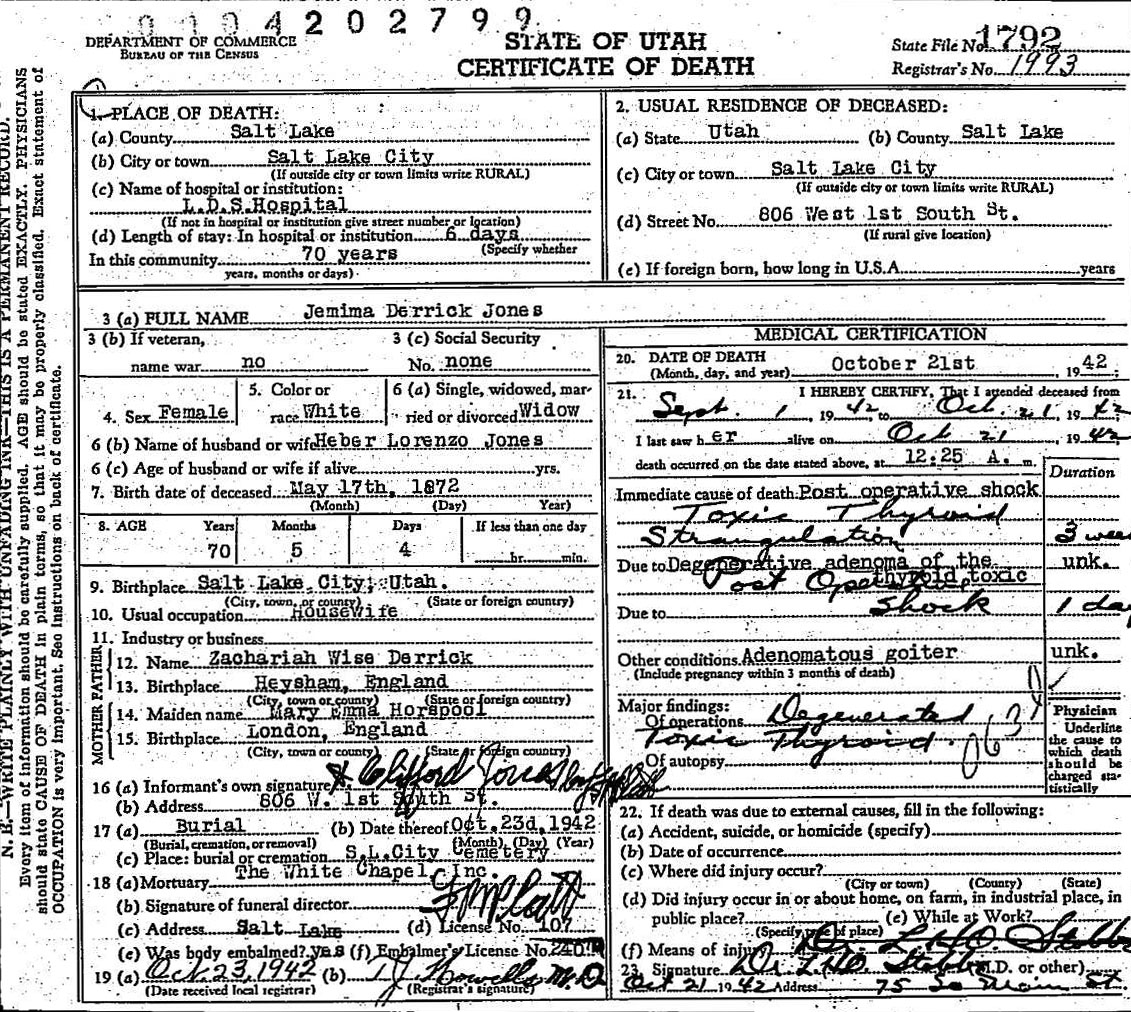 0 1 0 4 2 0 2 7 9 9
DEPARTMENT OF COMMERCE
BUREAU OF THE CENSUS
STATE OF UTAH
CERTIFICATE OF DEATH
State File No. 1792
Registrar's No. 1993
N. B.—WRITE PLAINLY WITH UNFADING INK—THIS IS A PERMANENT RECORD.
Every item of information should be carefully supplied. AGE should be stated EXACTLY. PHYSICIANS
should state CAUSE OF DEATH in plain terms, so that it may be properly classified. Exact statement of
OCCUPATION is very important. See instructions on back of certificate.
1. PLACE OF DEATH:
(a) County Salt Lake
(b) City or town Salt Lake City
(If outside city or town limits write RURAL)
(c) Name of hospital or institution:
L.D.S.Hospital
(If not in hospital or institution give street number or location)
(d) Length of stay: In hospital or institution 6 days
(Specify whether
In this community 70 years
years, months or days)
2. USUAL RESIDENCE OF DECEASED:
(a) State Utah (b) County Salt Lake
(c) City or town Salt Lake City
(If outside city or town limits write RURAL)
(d) Street No. 806 West 1st South St.
(If rural give location)
(e) If foreign born, how long in U.S.A. years
3 (a) FULL NAME Jemima Derrick Jones
3 (b) If veteran, 3 (c) Social Security
name war no No. none
4. Sex Female 5. Color or race White 6 (a) Single, widowed, married or divorced Widow
6 (b) Name of husband or wife Heber Lorenzo Jones
6 (c) Age of husband or wife if alive yrs.
7. Birth date of deceased May 17th, 1872
(Month) (Day) Year)
8. AGE Years Months Days If less than one day
70 5 4 hr. min.
9. Birthplace Salt Lake City, Utah.
(City, town, or county) (State or foreign country)
10. Usual occupation Housewife
11. Industry or business
FATHER
12. Name Zachariah Wise Derrick
13. Birthplace Heysham, England
(City, town or county) (State or foreign country)
MOTHER
14. Maiden name Mary Emma Horspool
15. Birthplace London, England
(City, town or county) (State or foreign country)
16 (a) Informant's own signature X Clifford Jones
(b) Address 806 W. 1st South St.
17 (a) Burial (b) Date thereof Oct. 23d, 1942
(Burial, cremation, or removal) (Month) (Day) (Year)
(c) Place: burial or cremation S.L.City Cemetery
18 (a) Mortuary The White Chapel, Inc.
(b) Signature of funeral director
(c) Address Salt Lake (d) License No. 107
(e) Was body embalmed? yes (f) Embalmer's License No. 240
19 (a) Oct. 23, 1942 (b) T.J. Howells M.D
(Date received local registrar) (Registrar's signature)
MEDICAL CERTIFICATION
20. DATE OF DEATH October 21st, 1942
(Month, day, and year)
21. I HEREBY CERTIFY, That I attended deceased from
Sept. 1, 1942 to Oct. 21, 1942
I last saw her alive on Oct 21, 1942
death occurred on the date stated above, at 12:25 A. m.
Duration
Immediate cause of death Post operative shock
Toxic Thyroid
Strangulation 3
Due to Degenerative adenoma of the unk.
thyroid, toxic
Post Operative
Due to Shock 1 day
Other conditions Adenomatous goiter unk.
(Include pregnancy within 3 months of death)
Major findings:
Of operations Degenerated
Toxic Thyroid.
Of autopsy
Physician
Underline
the cause to
which death
should be
charged sta-
tistically
22. If death was due to external causes, fill in the following:
(a) Accident, suicide, or homicide (specify)
(b) Date of occurrence
(c) Where did injury occur?
(City or town) (County) (State)
(d) Did injury occur in or about home, on farm, in industrial place, in
public place? (e) While at Work?
(Specify type of place)
(f) Means of injury Dr. L.H.O. Stobbe
23. Signature Dr. L.H.O. Stobbe (M.D. or other)
Oct 21 1942 Address 75 So Main St.